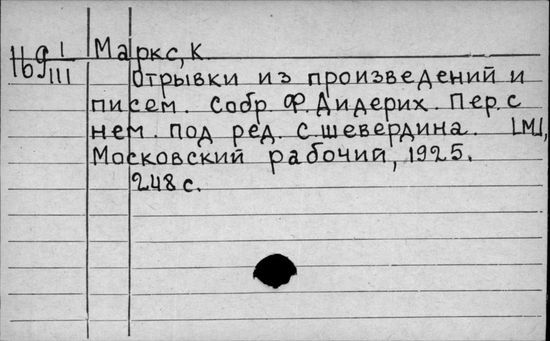 169 I/III Маркс, К.
Отрывки из произведений и
писем. Собр. Ф. Дидерих. Пер. с
нем. под ред. С. Шевердина. [М],
Московский рабочий, 1925.
248 с.